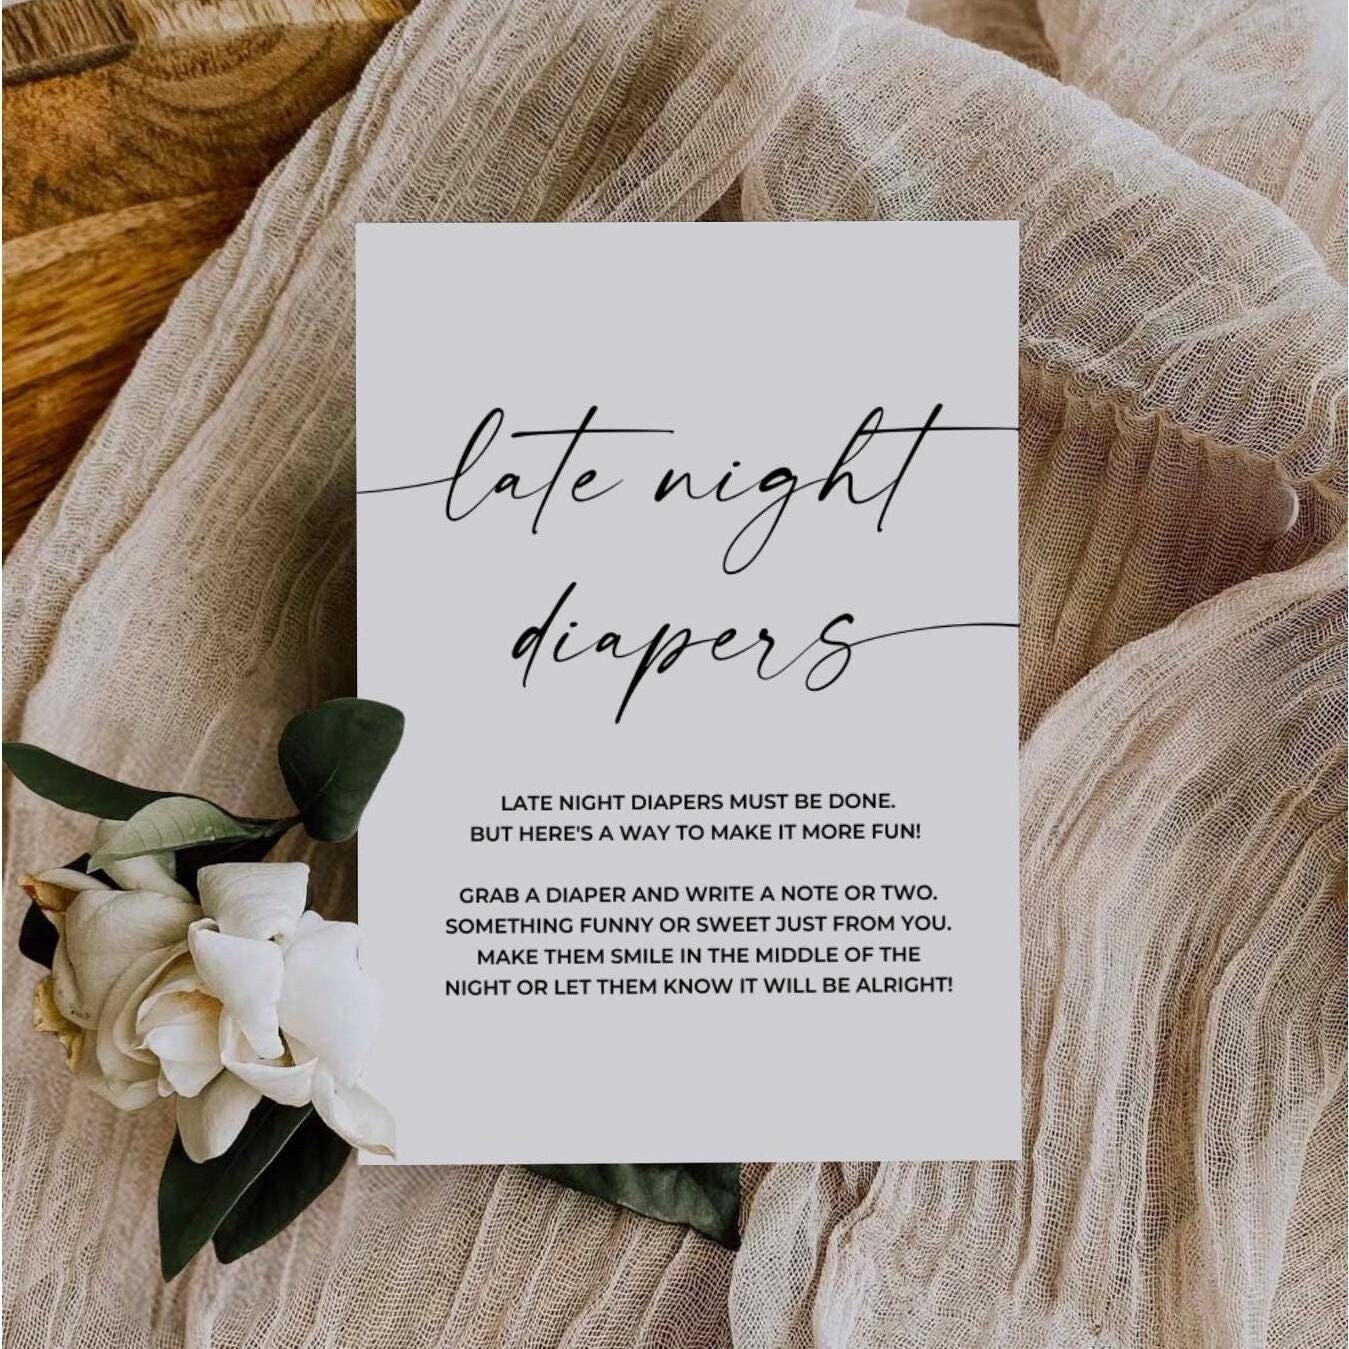 late night
diapers
LATE NIGHT DIAPERS MUST BE DONE.
BUT HERE'S A WAY TO MAKE IT MORE FUN!
GRAB A DIAPER AND WRITE A NOTE OR TWO.
SOMETHING FUNNY OR SWEET JUST FROM YOU.
MAKE THEM SMILE IN THE MIDDLE OF THE
NIGHT OR LET THEM KNOW IT WILL BE ALRIGHT!